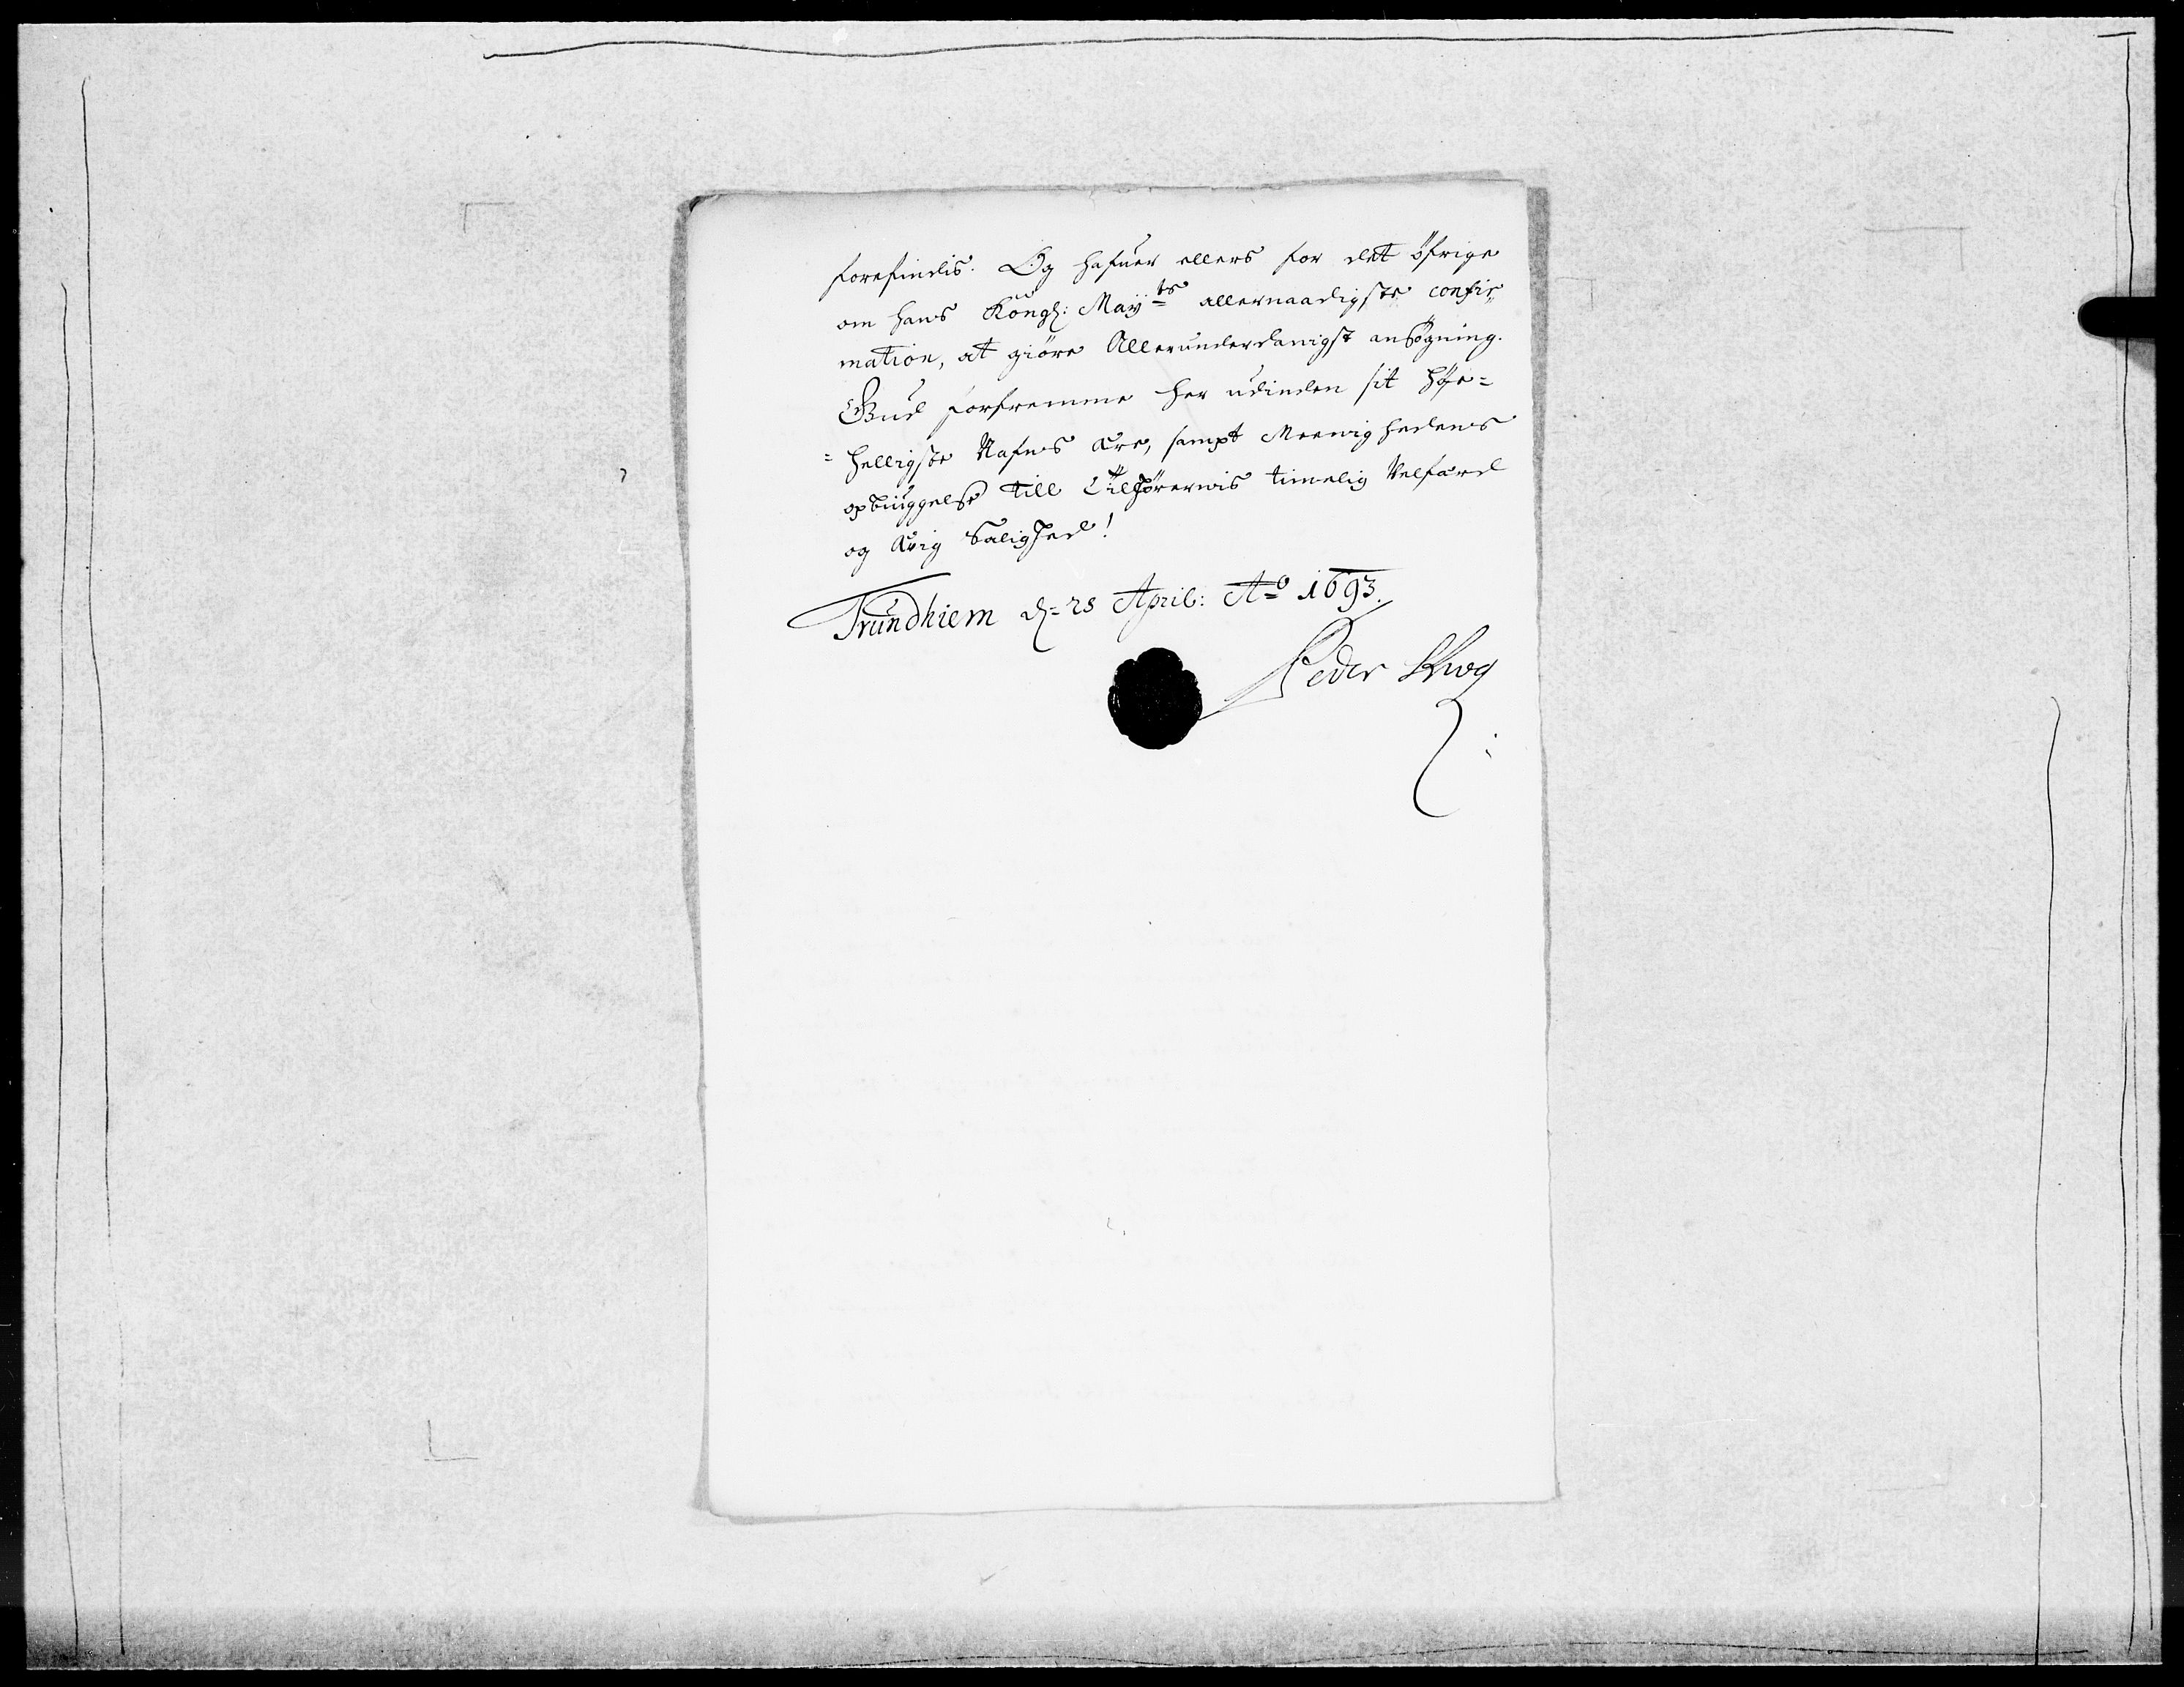 forefindis. Og hafuer ellers for det öfrige
om hans Kongl: Maÿ<sup>ts</sup> allernaadigste confir„
mation, at giöre Allerunderdanigst ansögning.
Gud forfremme her udinden sit höje=
=helligste Nafns Ære, sampt Meenighedens
opbÿggelse till Tilhörernis timelig Velfærd
og Ævig Salighed!
Trundhiem d= 28 April: A<sup>o</sup> 1693.
Peder Krog